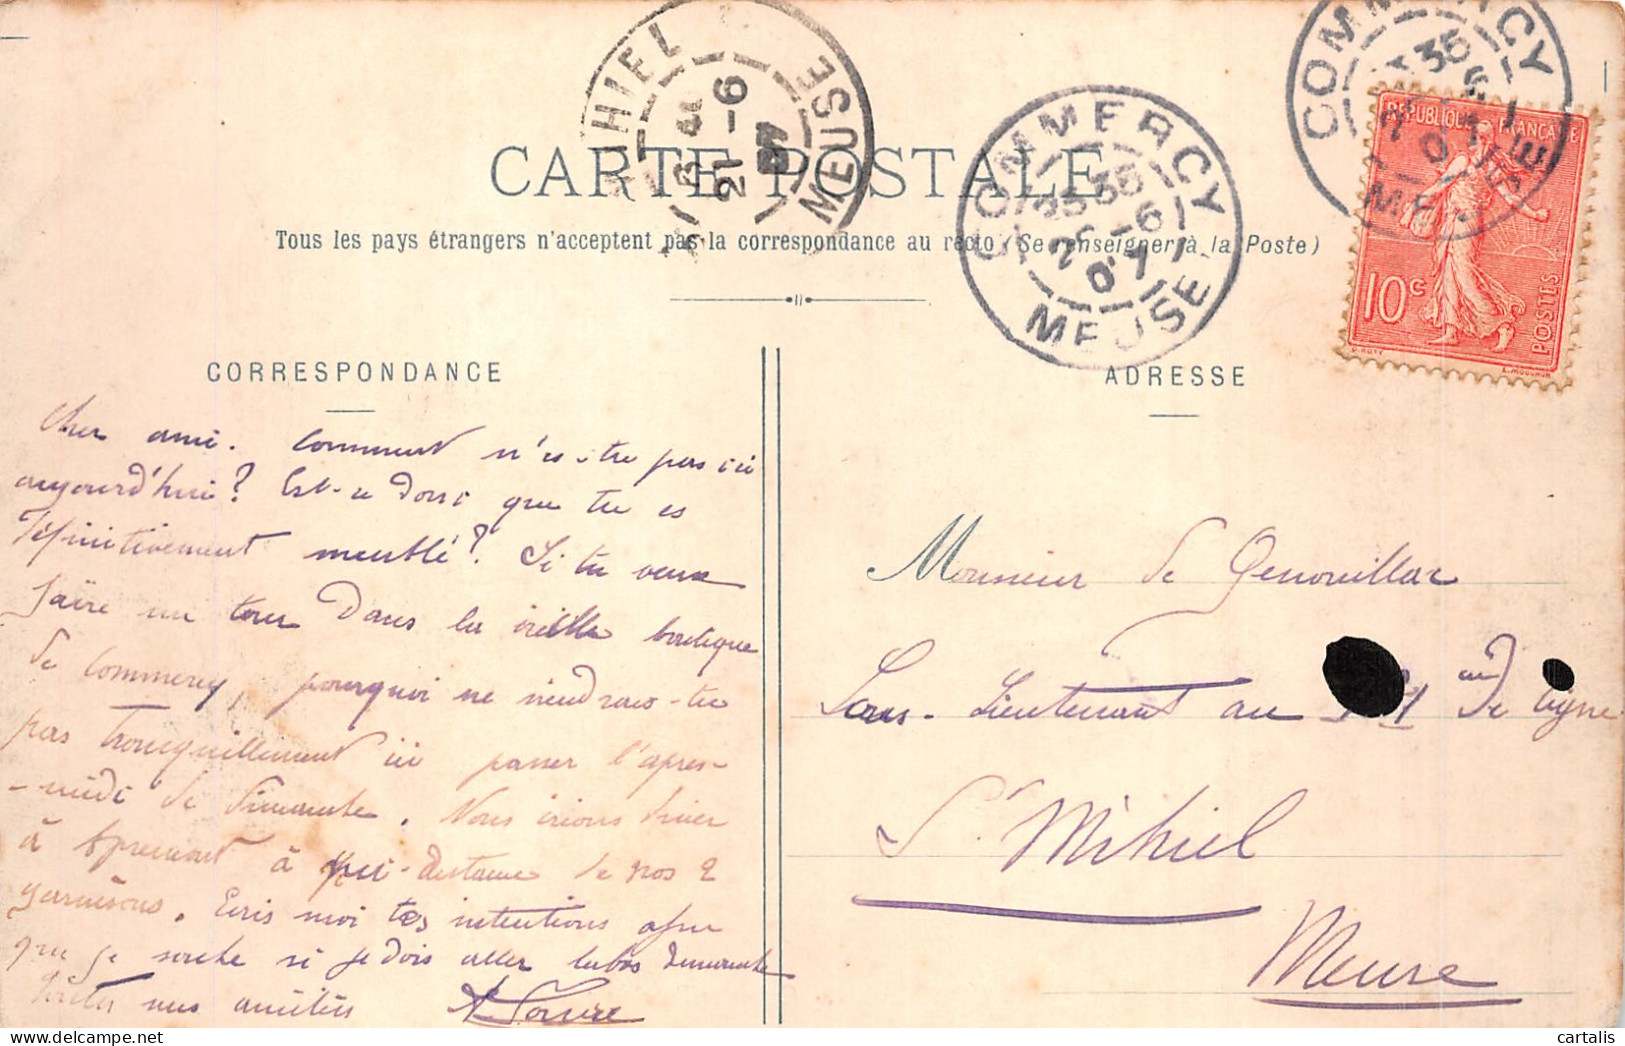 CARTE POSTALE
Tous les pays étrangers n'acceptent pas la correspondance au recto (Se renseigner à la Poste)
CORRESPONDANCE
ADRESSE
COMMERCY
35
6
MEUSE
COMMERCY
35
-6
07
MEUSE
HIEL
21-6
07
MEUSE
REPUBLIQUE FRANÇAISE
10c
POSTES
O. ROTY
L. MOUCHON
Cher ami. Comment n'es-tu pas ici
aujourd'hui? Est-ce donc que tu es
définitivement meublé? Si tu veux
faire un tour dans la vieille boutique
de Commercy, pourquoi ne viendrais-tu
pas tranquillement ici passer l'après-
-midi de dimanche. Nous irions dîner
à Apremont à mi-distance de nos 2
garnisons. Ecris moi tes intentions afin
que je sache si je dois aller labas dimanche
mes amitiés
Monsieur de Genouillac
Sous-Lieutenant au de ligne
St Mihiel
Meuse
cartalis
delcampe.net